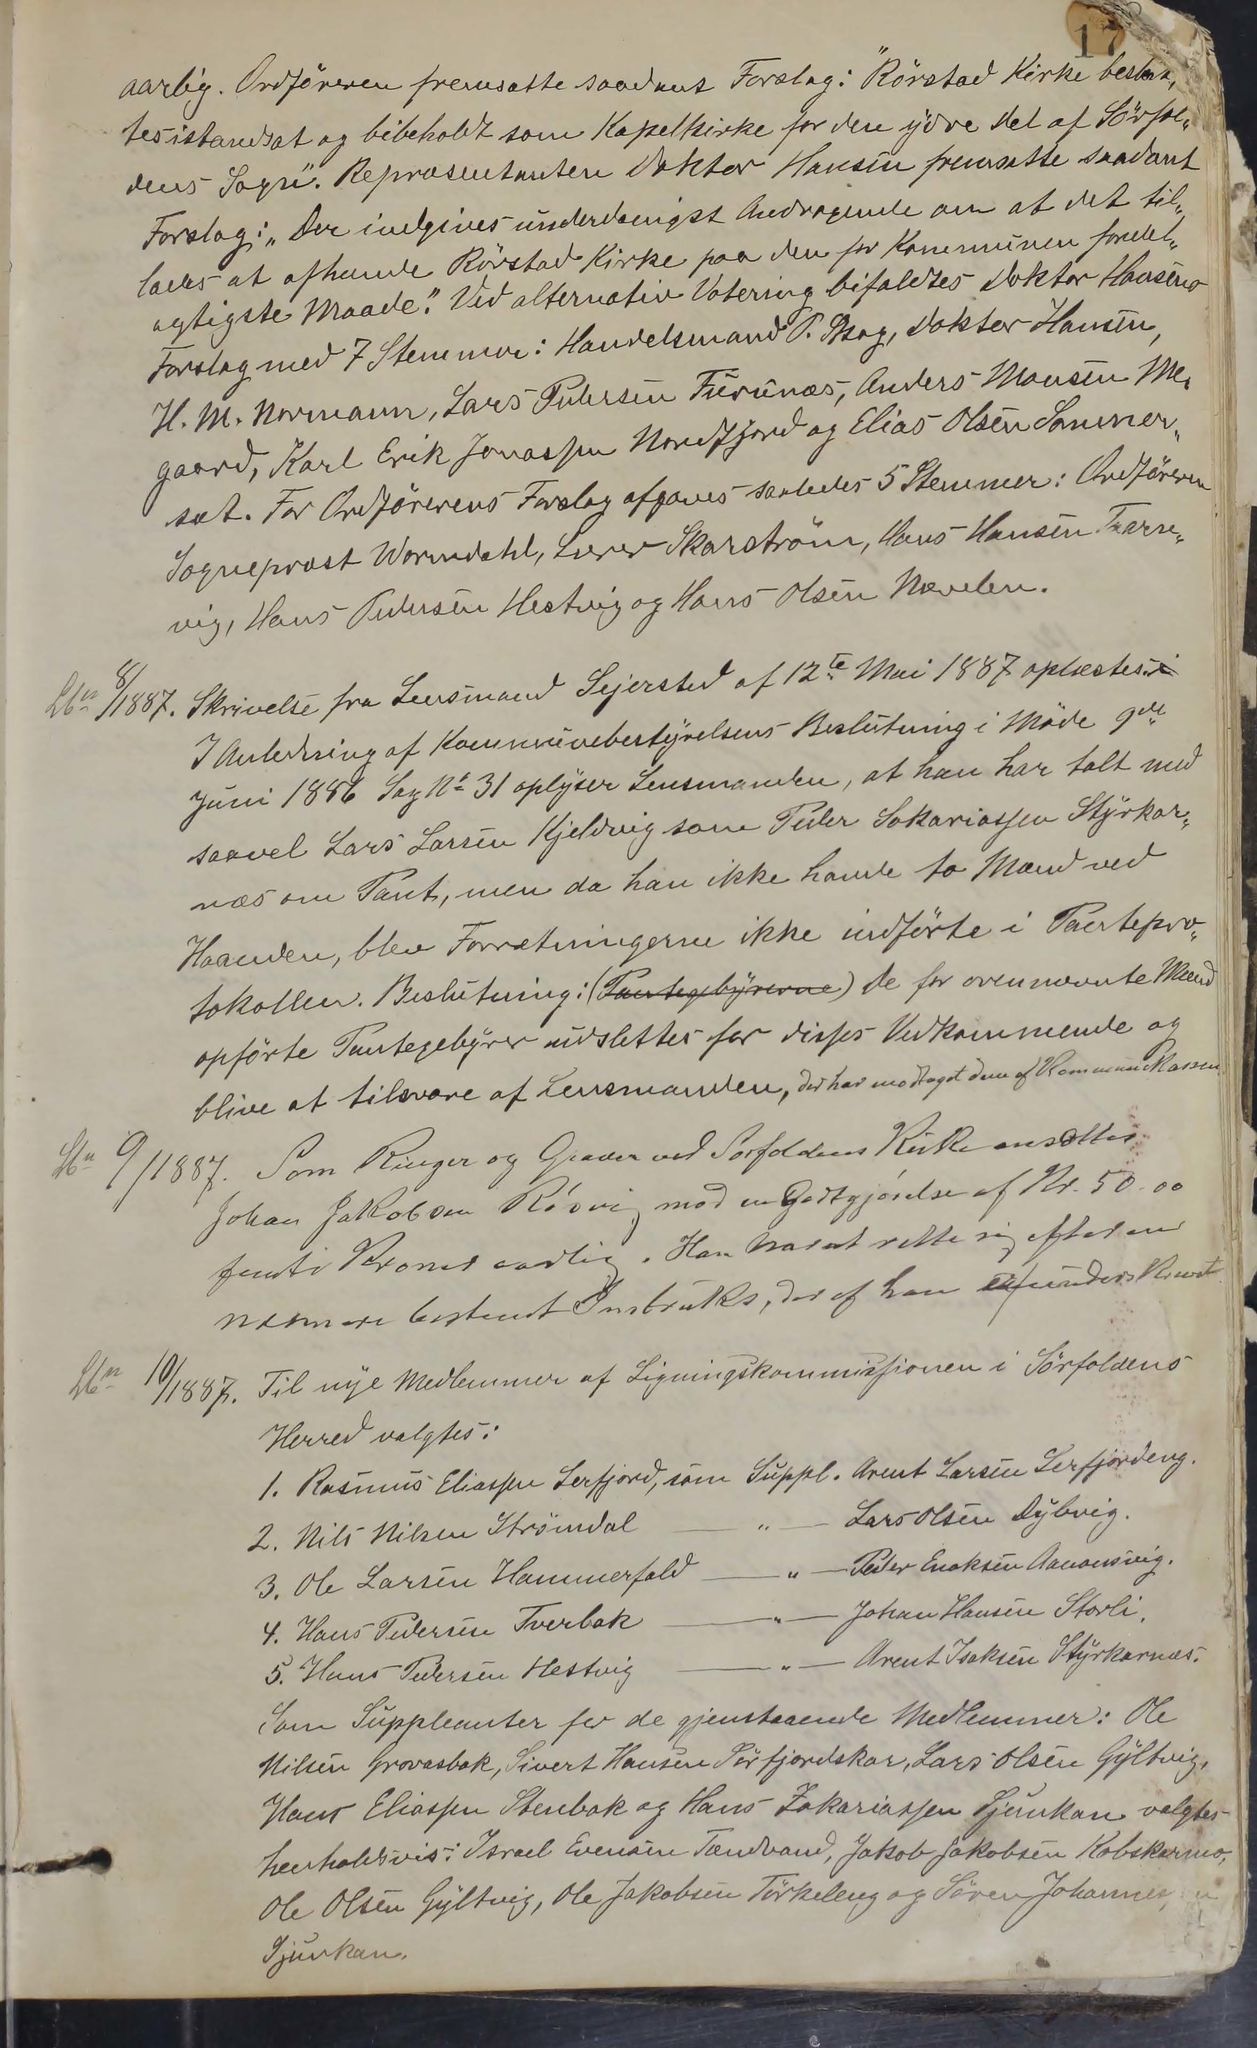 17
aarlig. Ordföreren fremsatte saadant Forslag: "Rörstad Kirke beslut„
tes istandsat og bibeholdt som Kapelkirke for den ydre Del af Sörfol„
dens Sogn". Repræsentanten Doktor Hansen fremsatte saadant
Forslag: „Der indgives underdanigst Andragende om at det til„
lades at afhænde Rörstad Kirke paa den for Kommunen fordel„
agtigste Maade." Ved alternativ Votering bifaldtes Doktor Hansens
Forslag med 7 Stemmer: Handelsmand P. Skog, Doktor Hansen,
H. M. Normann, Lars Pedersen Furunæs, Anders Monsen Me„
gaard, Karl Erik Jonassen Nordfjord og Elias Olsen Sommer„
sæt. For Ordförerens Forslag afgaves saaledes 5 Stemmer: Ordföreren
Sogneprest Wormdahl, Lærer Skarström, Hans Hansen Tørre„
vig, Hans Pedersen Hestvig og Hans Olsen Nævelen.
Sbn 8/1887. Skrivelse fra Lensmand Sejersted af 12te Mai 1887 oplæstes.
I Anledning af Kommunebestyrelsens Beslutning i Möde 9de
Juni 1886 Sag No 31 oplyser Lensmanden, at han har talt med
saavel Lars Larsen Kjeldvig som Peder Sakariassen Styrkes„
næs om Pant, men da han ikke havde to Mænd ved
Haanden, blev Forretningerne ikke indförte i Pantepro„
tokollen. Beslutning: (Pantegebyrerne) De for ovennævnte Mænd
opförte Pantegebyrer udslettes for disses Vedkommende og
blive at tilsvare af Lensmanden, der har modtaget dem af Kommunekassen
Sbn 9/1887. Som Ringer og Graver ved Sorfoldens Kirke ansattes
Johan Jakobsen Rösvig mod en Godtgjörelse af Kr. 50.00
femti Kroner aarlig. Han har at rette sig efter en
nærmere bestemt Instruks, der af han underskrevet
Sbn 10/1887. Til nye Medlemmer af Ligningskommissionen i Sörfoldens
Herred valgtes:
1. Rasmus Eliassen Lerfjord, som Suppl. Arent Larsen Lerfjordeng.
2. Nils Nilsen Strömdal — „ — Lars Olsen Dybvig.
3. Ole Larsen Hammerfald — „ — Peder Enoksen Aanonsvig.
4. Hans Pedersen Tverbak — „ — Johan Hansen Storli.
5. Hans Pedersen Hestvig — „ — Arent Isaksen Styrkarnæs.
Som Suppleanter for de gjenstaaende Medlemmer: Ole
Nilsen Grovasbak, Sivert Hansen Sörfjordskar, Lars Olsen Gyltvig,
Hans Eliassen Stenbak og Hans Zakariassen Tjunkan valgtes
henholdsvis: Israel Evensen Tændvand, Jakob Jakobsen Kobskarmo,
Ole Olsen Gyltvig, Ole Jakobsen Törkeleng og Sören Johannes
Tjunkan.